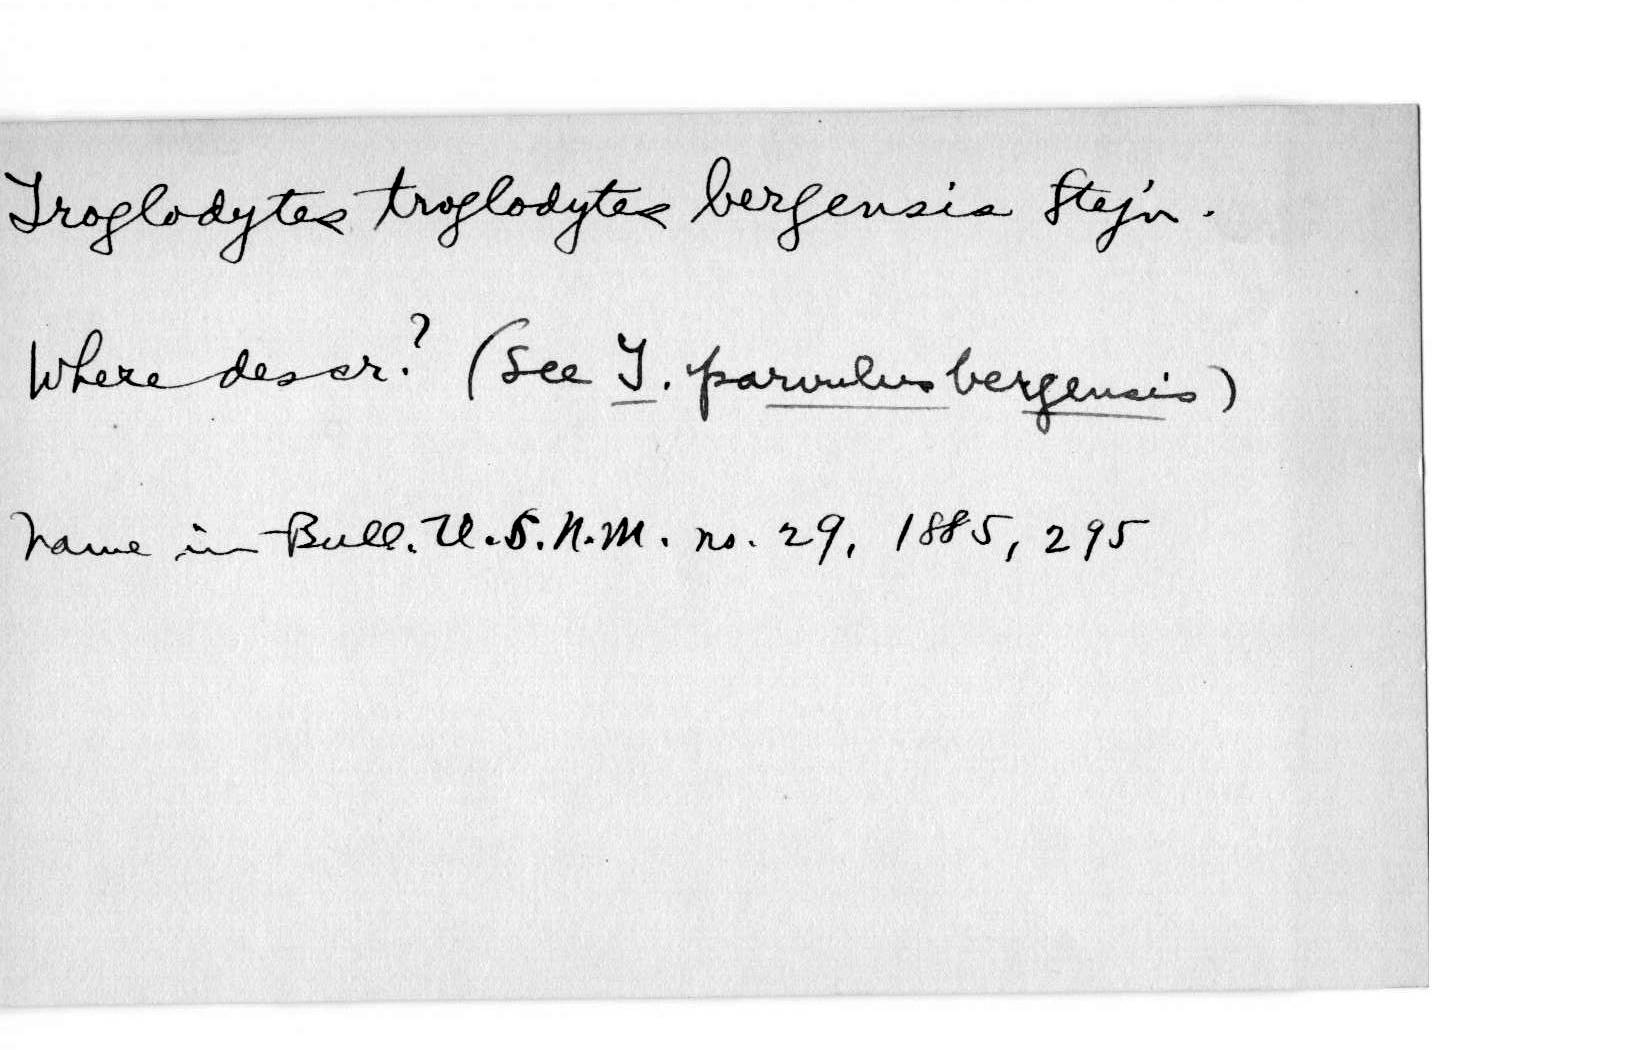 Troglodytes troglodytes bergensis Stejn.
Where descr.? (See T. parvulus bergensis)
Name in Bull. U.S.N.M. no. 29, 1885, 295